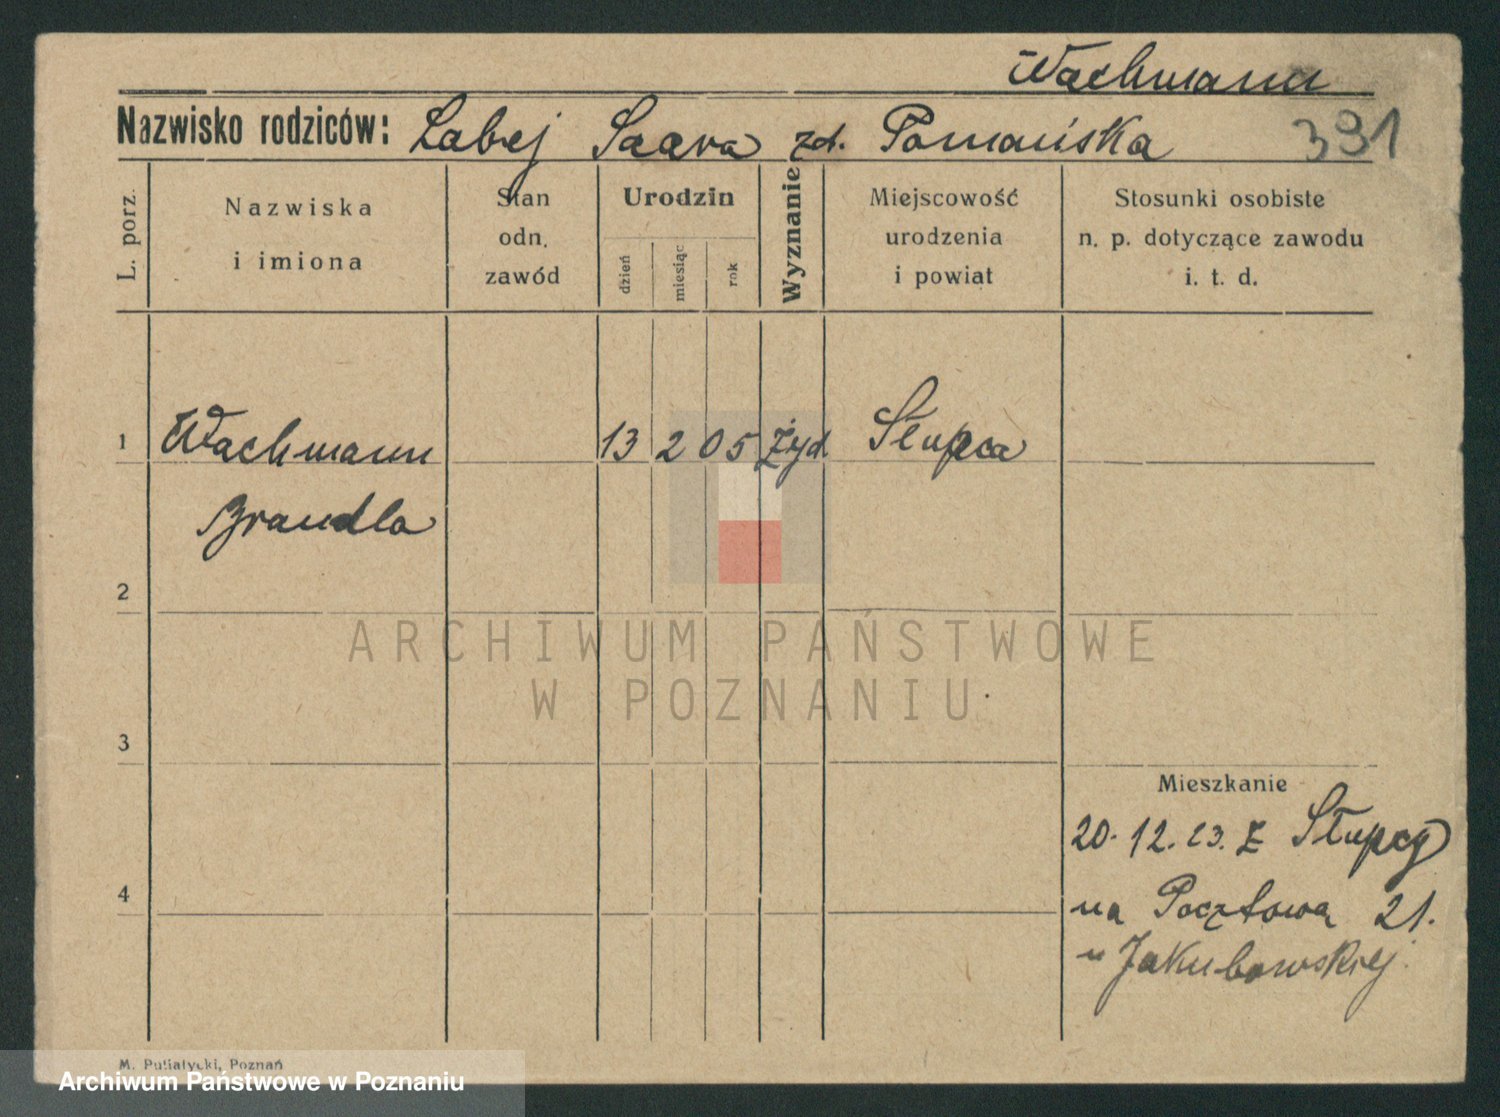 Wachmann
Nazwisko rodziców: Zabej Saara zd. Pomańska
391
L. porz.
Nazwiska
i imiona
Stan
odn.
zawód
Urodzin
dzień
miesiąc
rok
Wyznanie
Miejscowość
urodzenia
i powiat
Stosunki osobiste
n. p. dotyczące zawodu
i. t. d.
1 Wachmann 13 2 05 Żyd Słupca
Brandla
2
ARCHIWUM PAŃSTWOWE
W POZNANIU
3
Mieszkanie
20. 12. 23. z Słupcy
4
na Pocztową 21.
u Jakubowskiej.
M. Putiatycki, Poznań
Archiwum Państwowe w Poznaniu